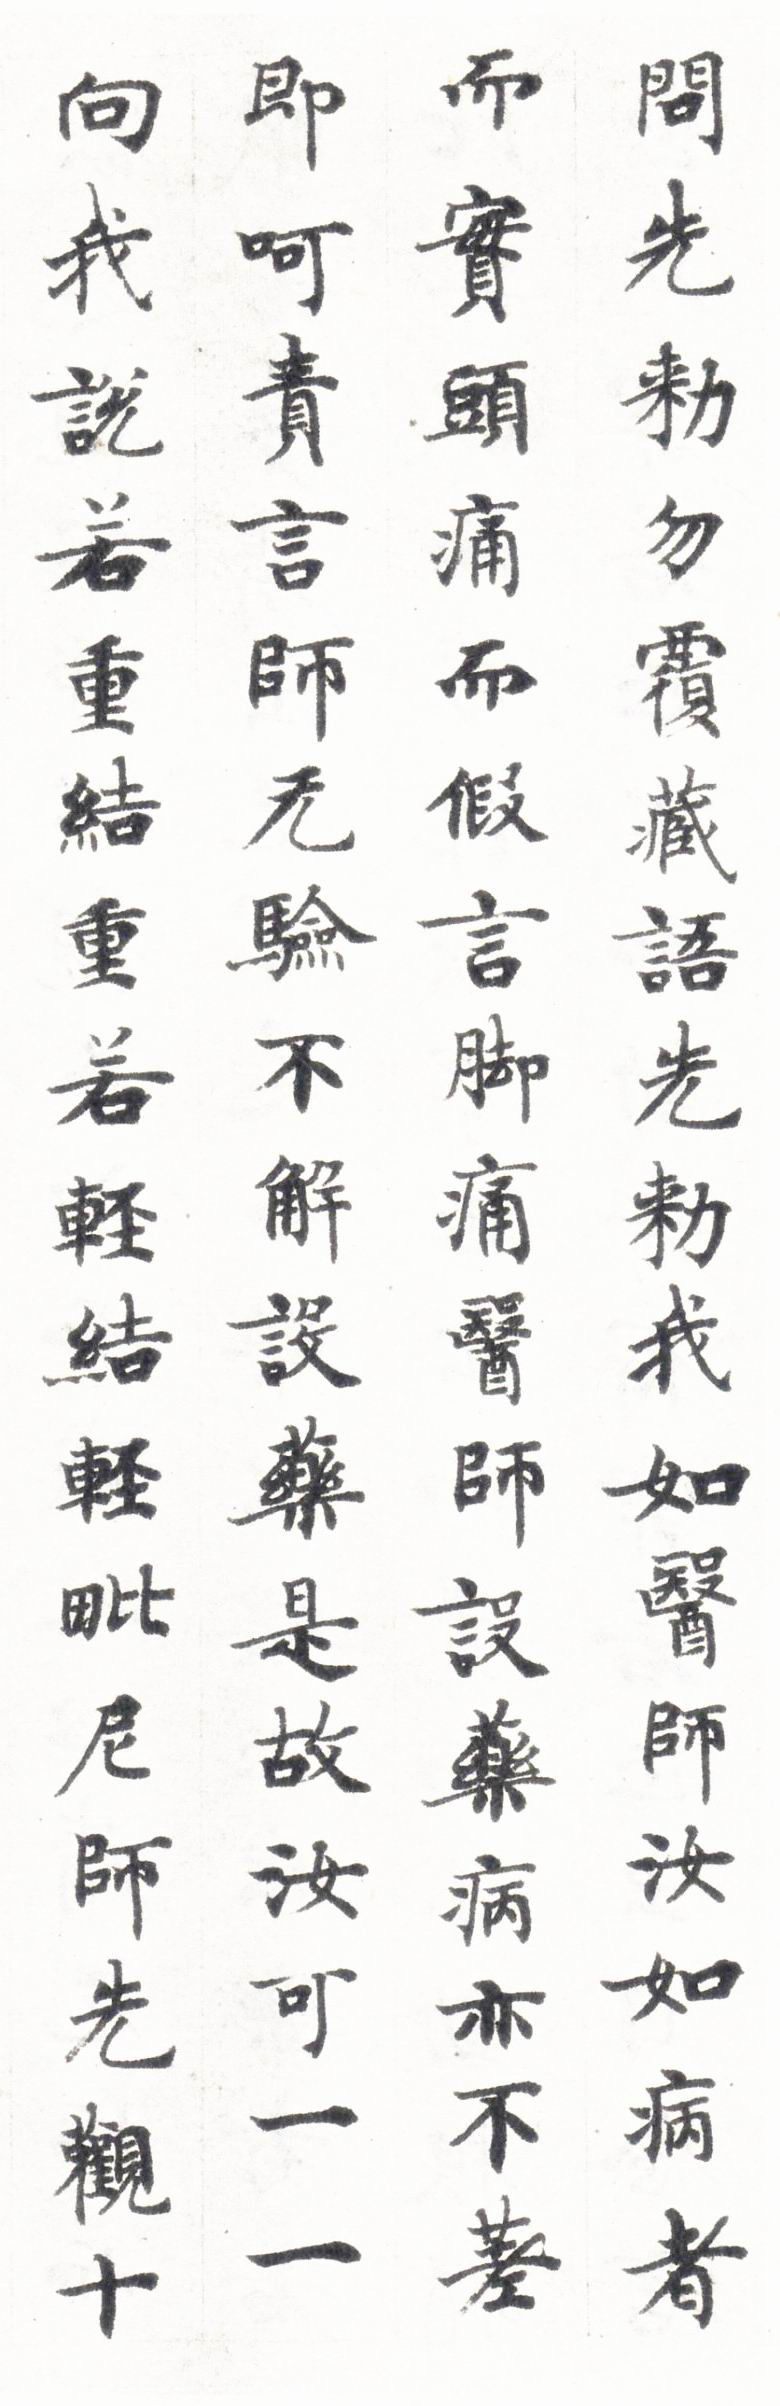 問先勑勿覆藏語先勑我如醫師汝如病者
而實頭痛而假言脚痛醫師設藥病亦不差
即呵責言師无驗不解設藥是故汝可一一
向我説若重結重若軽結軽毗尼師先觀十